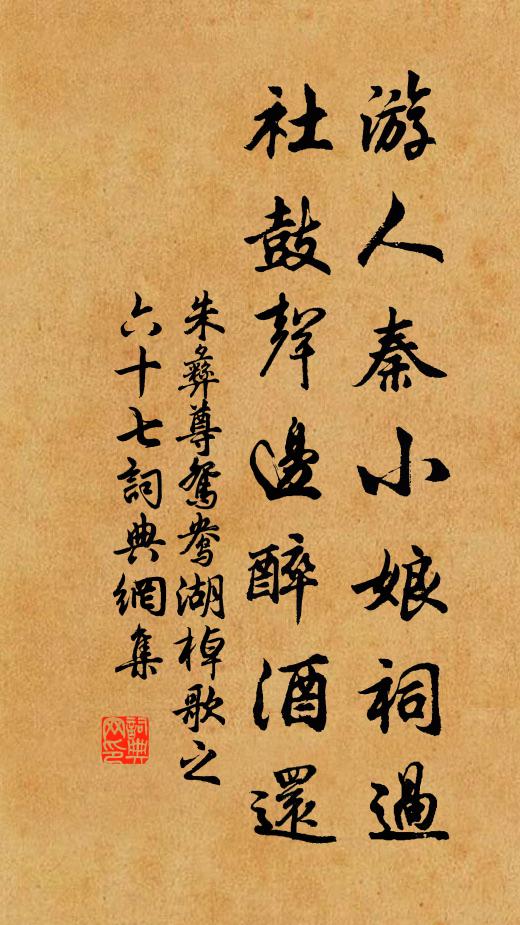 游人秦小娘祠過
社鼓聲邊醉酒還
朱彝尊鴛鴦湖棹歌之
六十七詞典網集
詞典
网印